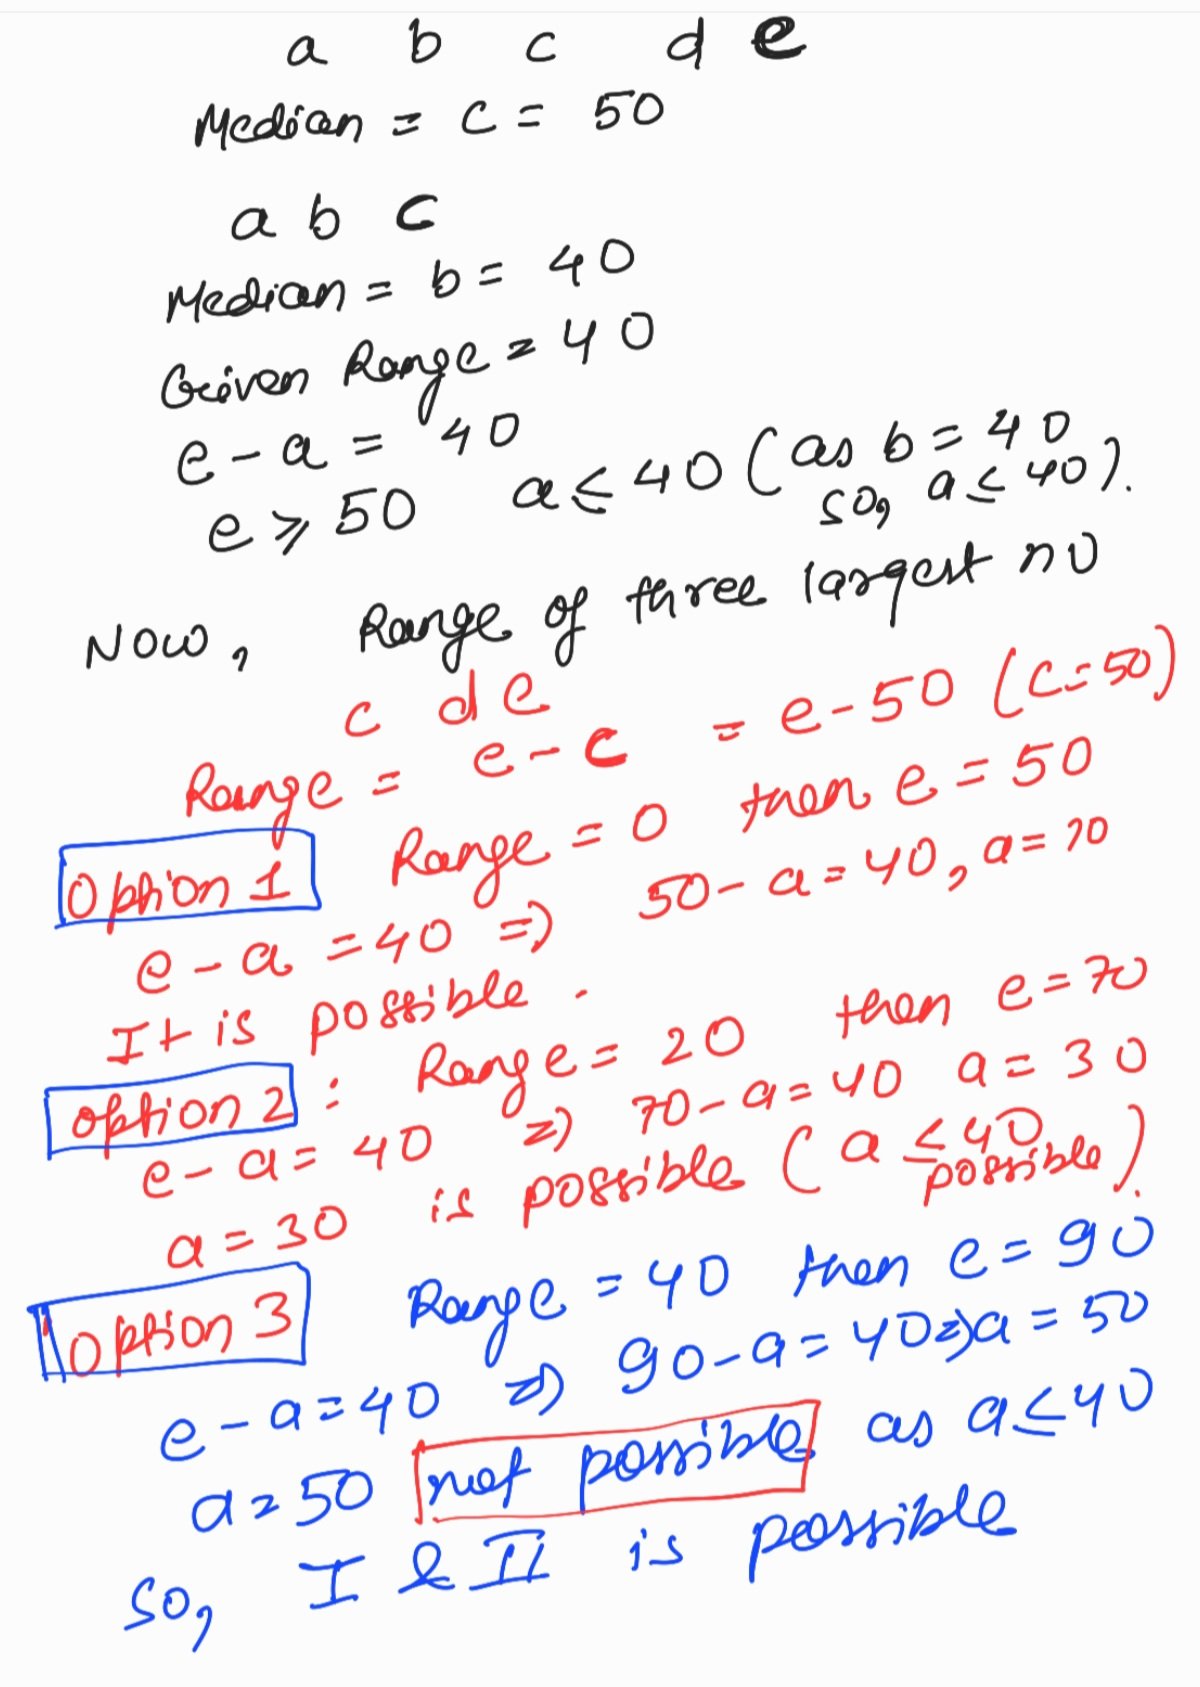 a b c d e
Median = c = 50
a b c
Median = b = 40
Given Range = 40
e - a = 40
e ⩾ 50 a ≤ 40 (as b = 40
so, a ≤ 40).
Now, Range of three largest no
c d e
Range = e - c = e - 50 (c = 50)
Option 1 Range = 0 then e = 50
e - a = 40 => 50 - a = 40, a = 10
It is possible.
Option 2 : Range = 20 then e = 70
e - a = 40 => 70 - a = 40 a = 30
a = 30 is possible (a ≤ 40
possible).
Option 3 Range = 40 then e = 90
e - a = 40 => 90 - a = 40 => a = 50
a = 50 not possible as a ≤ 40
So, I & II is possible